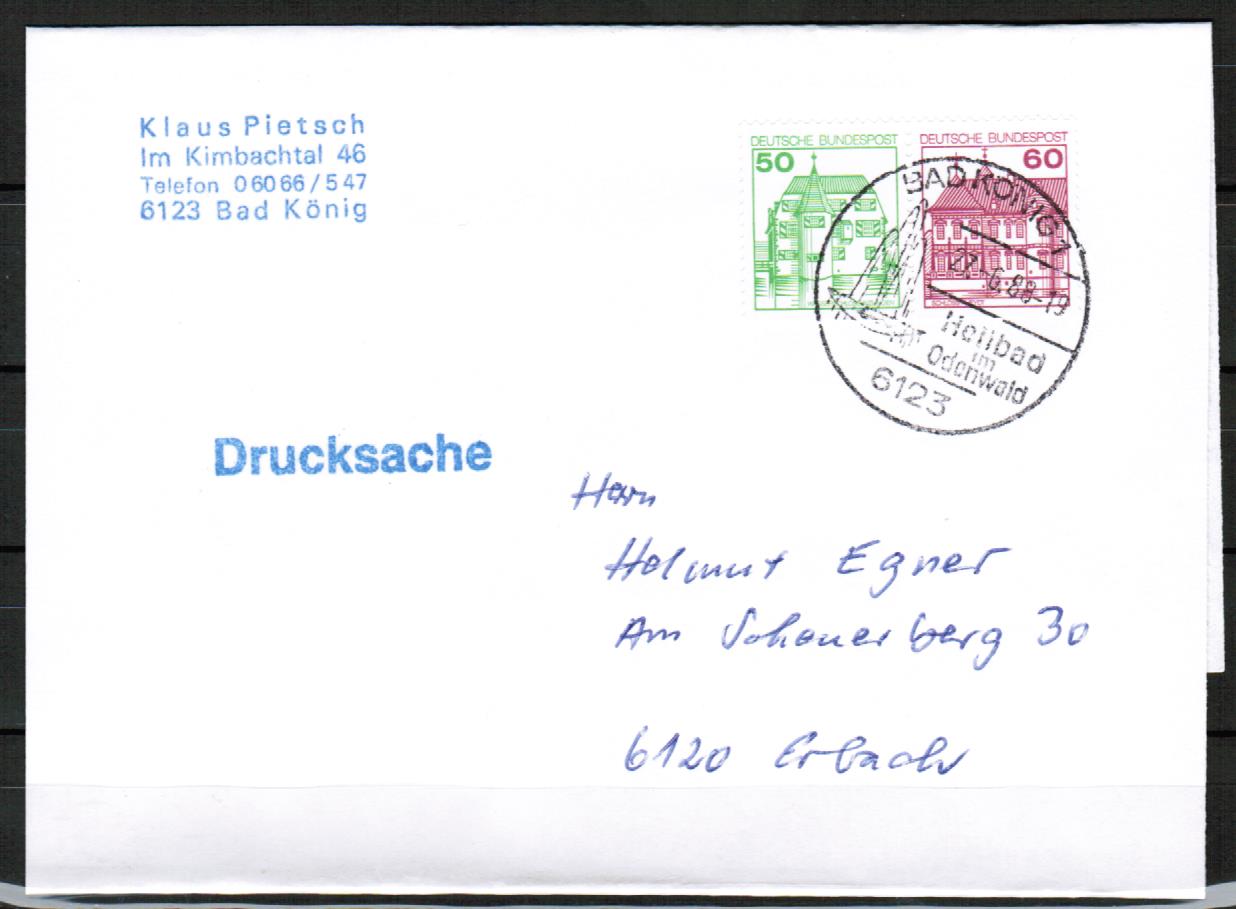 Klaus Pietsch
Im Kimbachtal 46
Telefon 06066/547
6123 Bad König
DEUTSCHE BUNDESPOST
50
DEUTSCHE BUNDESPOST
60
BAD KÖNIG 1
27.-6.88-19
Heilbad
im
Odenwald
6123
Drucksache
Herrn
Helmut Egner
Am Schauerberg 30
6120 Erbach